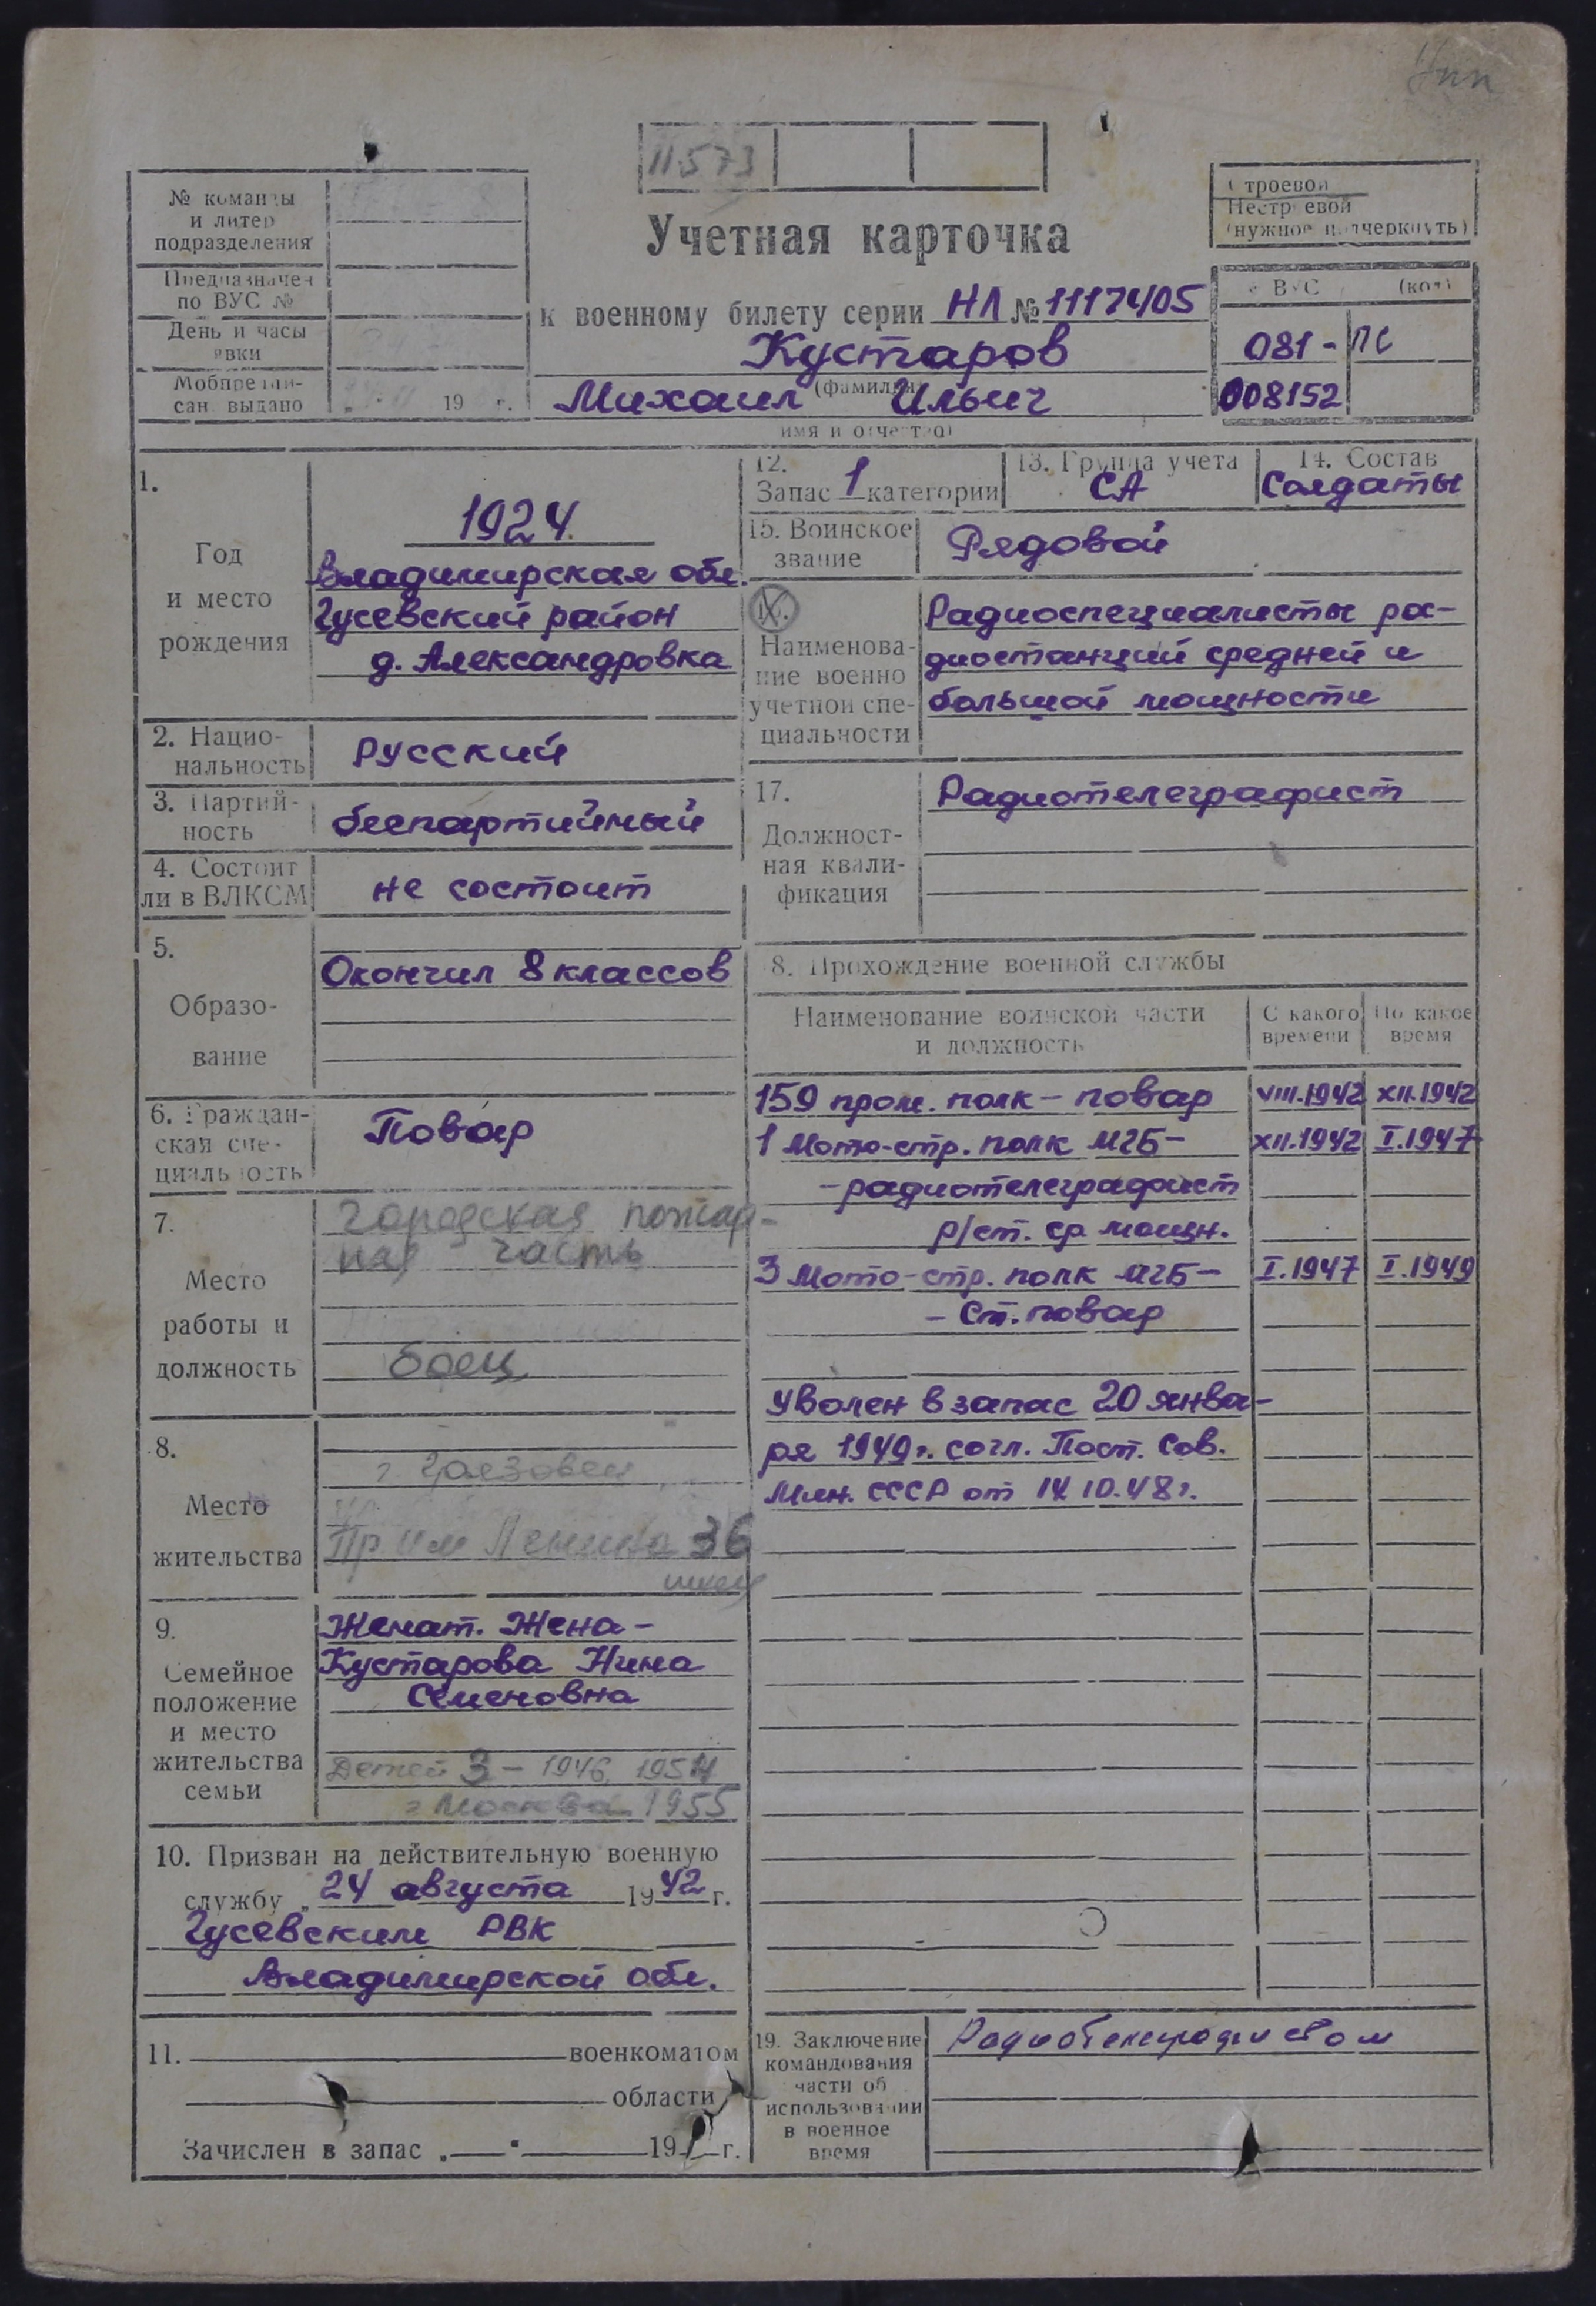 11573
№ команды
и литер
подразделения
Предназначен
по ВУС №
День и часы
явки
Мобпредпи-
сан. выдано
19 г.
Учетная карточка
к военному билету серии НЛ № 1117405
Кустаров
(фамилия)
Михаил Ильич
имя и отчество)
Строевой
Нестроевой
(нужное подчеркнуть)
ВУС (код)
081 - ПС
008152
1.
Год
и место
рождения
1924.
Владимирская обл.
Гусевский район
д. Александровка
2. Нацио-
нальность
Русский
3. Партий-
ность
беспартийный
4. Состоит
ли в ВЛКСМ
не состоит
5.
Образо-
вание
Окончил 8 классов
6. Граждан-
ская спе-
циальность
Повар
7.
Место
работы и
должность
Городская пожар-
ная часть
боец
8.
Место
жительства
г. Грязовец
Пр. им Ленина 36
9.
Семейное
положение
и место
жительства
семьи
Женат. Жена -
Кустарова Нина
Семеновна
Детей 3 - 1946, 1954
г Москва 1955
10. Призван на действительную военную
службу „ 24 августа 1942 г.
Гусевским РВК
Владимирской обл.
11. военкоматом
области
Зачислен в запас „ " 19 г.
12.
Запас 1 категории
13. Группа учета
СА
14. Состав
Солдаты
15. Воинское
звание
Рядовой
Наименова-
ние военно
учетной спе-
циальности
Радиоспециалисты ра-
диостанций средней и
большой мощности
17.
Должност-
ная квали-
фикация
Радиотелеграфист
8. Прохождение военной службы
Наименование воинской части
и должность
С какого
времени
По какое
время
159 пром. полк - повар VIII.1942 XII.1942
1 Мото-стр. полк МГБ - XII.1942 I.1947
- радиотелеграфист
р/ст. ср мощн.
3 Мото-стр. полк МГБ - I.1947 I.1949
- Ст. повар
Уволен в запас 20 янва-
ря 1949 г. согл. Пост. Сов.
Мин. СССР от 14.10.48 г.
19. Заключение
командования
части об
использовании
в военное
время
Радиотелеграфистом